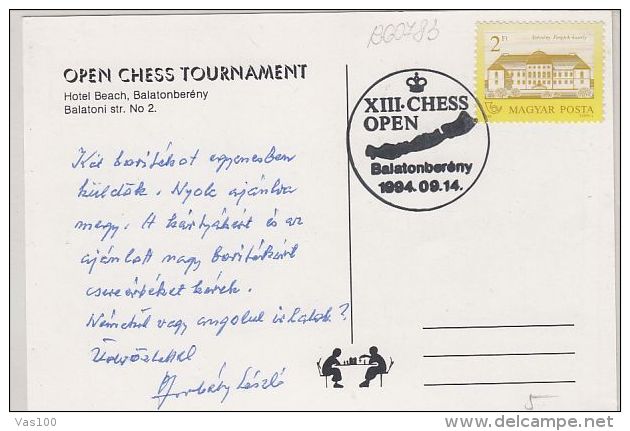 BG0786
2 Ft
MAGYAR POSTA
OPEN CHESS TOURNAMENT
Hotel Beach, Balatonberény
Balatoni str. No 2.
XIII. CHESS
OPEN
Balatonberény
1994.09.14.
Két borítékot egyenesben
küldök. Nyolc ajánlva
megy. A kártyákért és az
ajánlott nagy borítékért
csereértéket kérek.
Németül vagy angolul írhatok?
Üdvözlettel
László
Vas100
delcampe.net